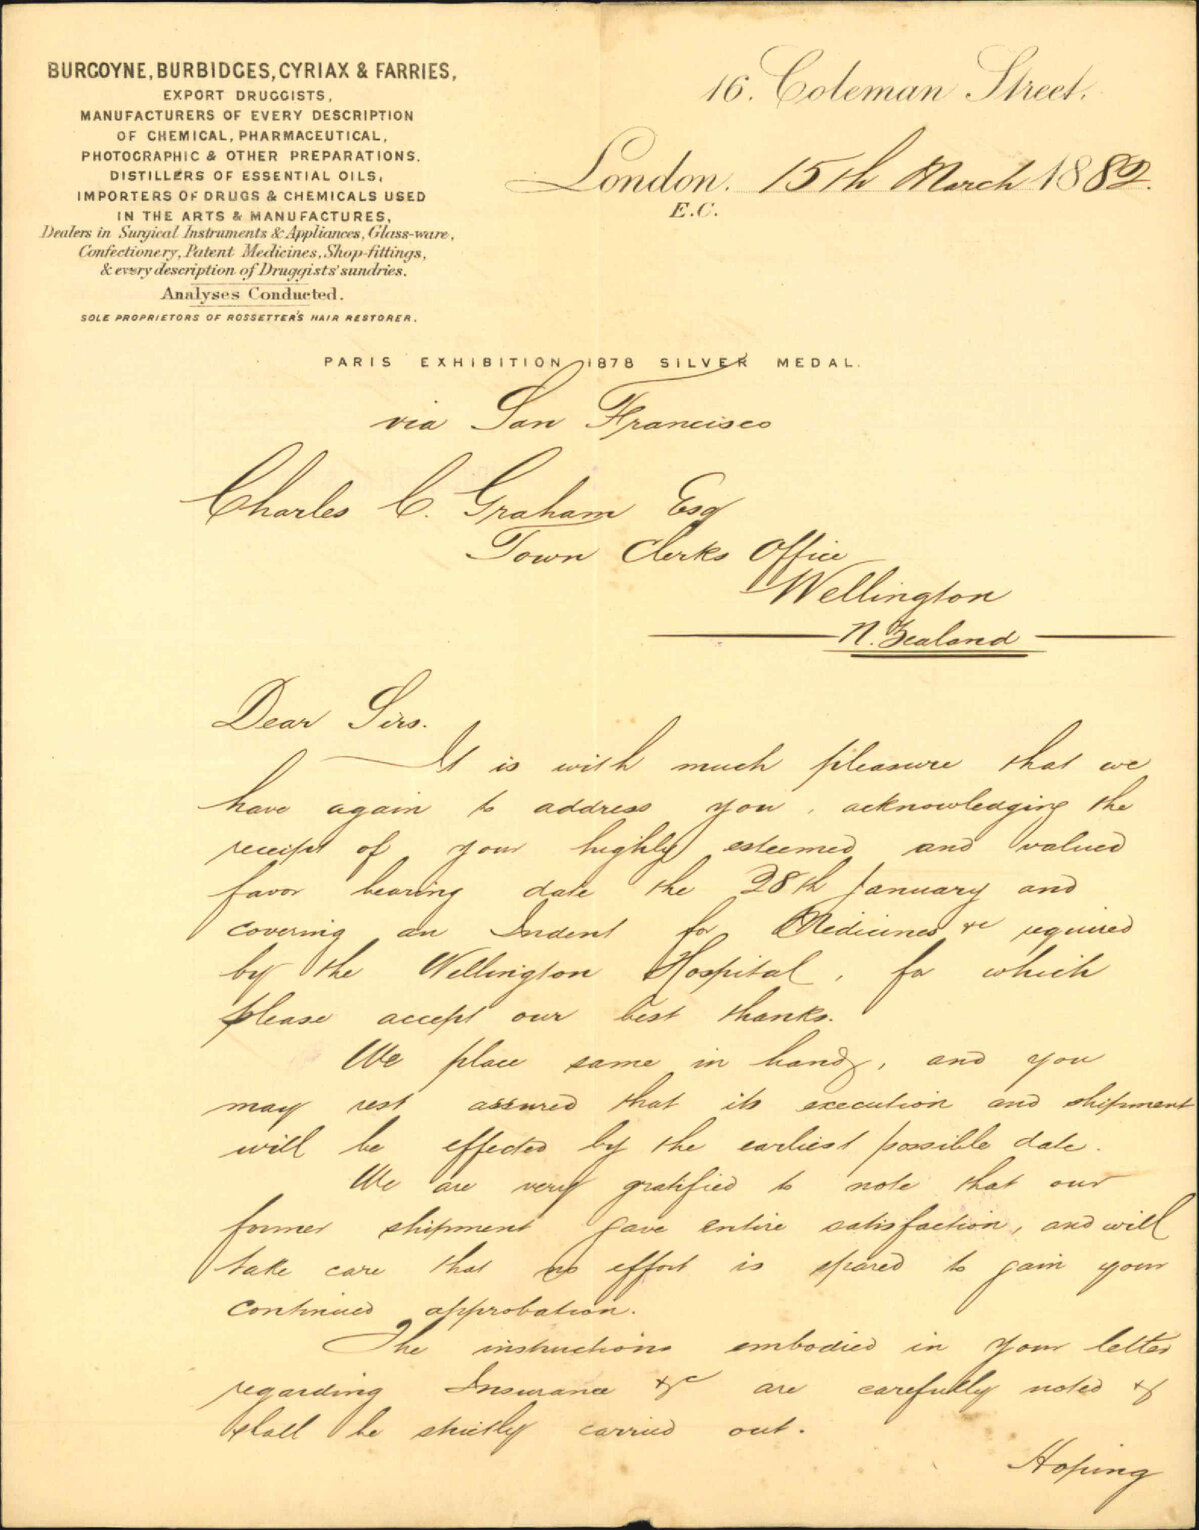 BURGOYNE, BURBIDGES, CYRIAX & FARRIES,
EXPORT DRUGGISTS,
MANUFACTURERS OF EVERY DESCRIPTION
OF CHEMICAL, PHARMACEUTICAL,
PHOTOGRAPHIC & OTHER PREPARATIONS.
DISTILLERS OF ESSENTIAL OILS,
IMPORTERS OF DRUGS & CHEMICALS USED
IN THE ARTS & MANUFACTURES,
Dealers in Surgical Instruments & Appliances, Glass-ware,
Confectionery, Patent Medicines, Shop-fittings,
& every description of Druggists' sundries.
Analyses Conducted.
SOLE PROPRIETORS OF ROSSETTER'S HAIR RESTORER.
16. Coleman Street.
London. 15th March 1882.
E.C.
PARIS EXHIBITION 1878 SILVER MEDAL.
via San Francisco
Charles C. Graham Esq
Town Clerks Office
Wellington
N. Zealand
Dear Sirs.
It is with much pleasure that we
have again to address you, acknowledging the
receipt of your highly esteemed and valued
favor bearing date the 28th January and
covering an Indent for Medicines &c required
by the Wellington Hospital, for which
please accept our best thanks.
We place same in hand, and you
may rest assured that its execution and shipment
will be effected by the earliest possible date.
We are very gratified to note that our
former shipment gave entire satisfaction, and will
take care that no effort is spared to gain your
continued approbation.
The instructions embodied in your letter
regarding Insurance &c are carefully noted &
shall be strictly carried out.
Hoping